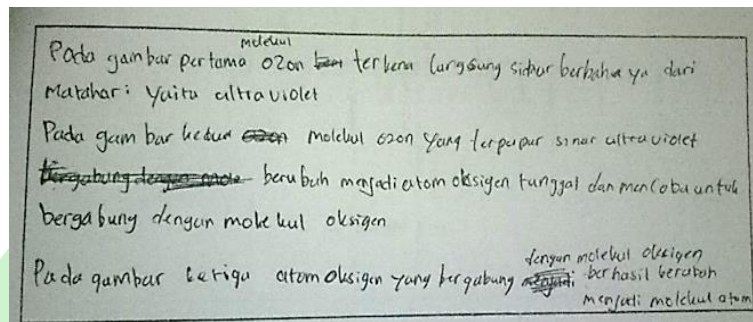 Pada gambar pertama molekul ozon terkena langsung sinar berbahaya dari
Matahari yaitu ultraviolet
Pada gambar kedua molekul ozon yang terpapar sinar ultraviolet
berubah menjadi atom oksigen tunggal dan mencoba untuk
bergabung dengan molekul oksigen
Pada gambar ketiga atom oksigen yang bergabung dengan molekul oksigen
berhasil berubah
menjadi molekul atom